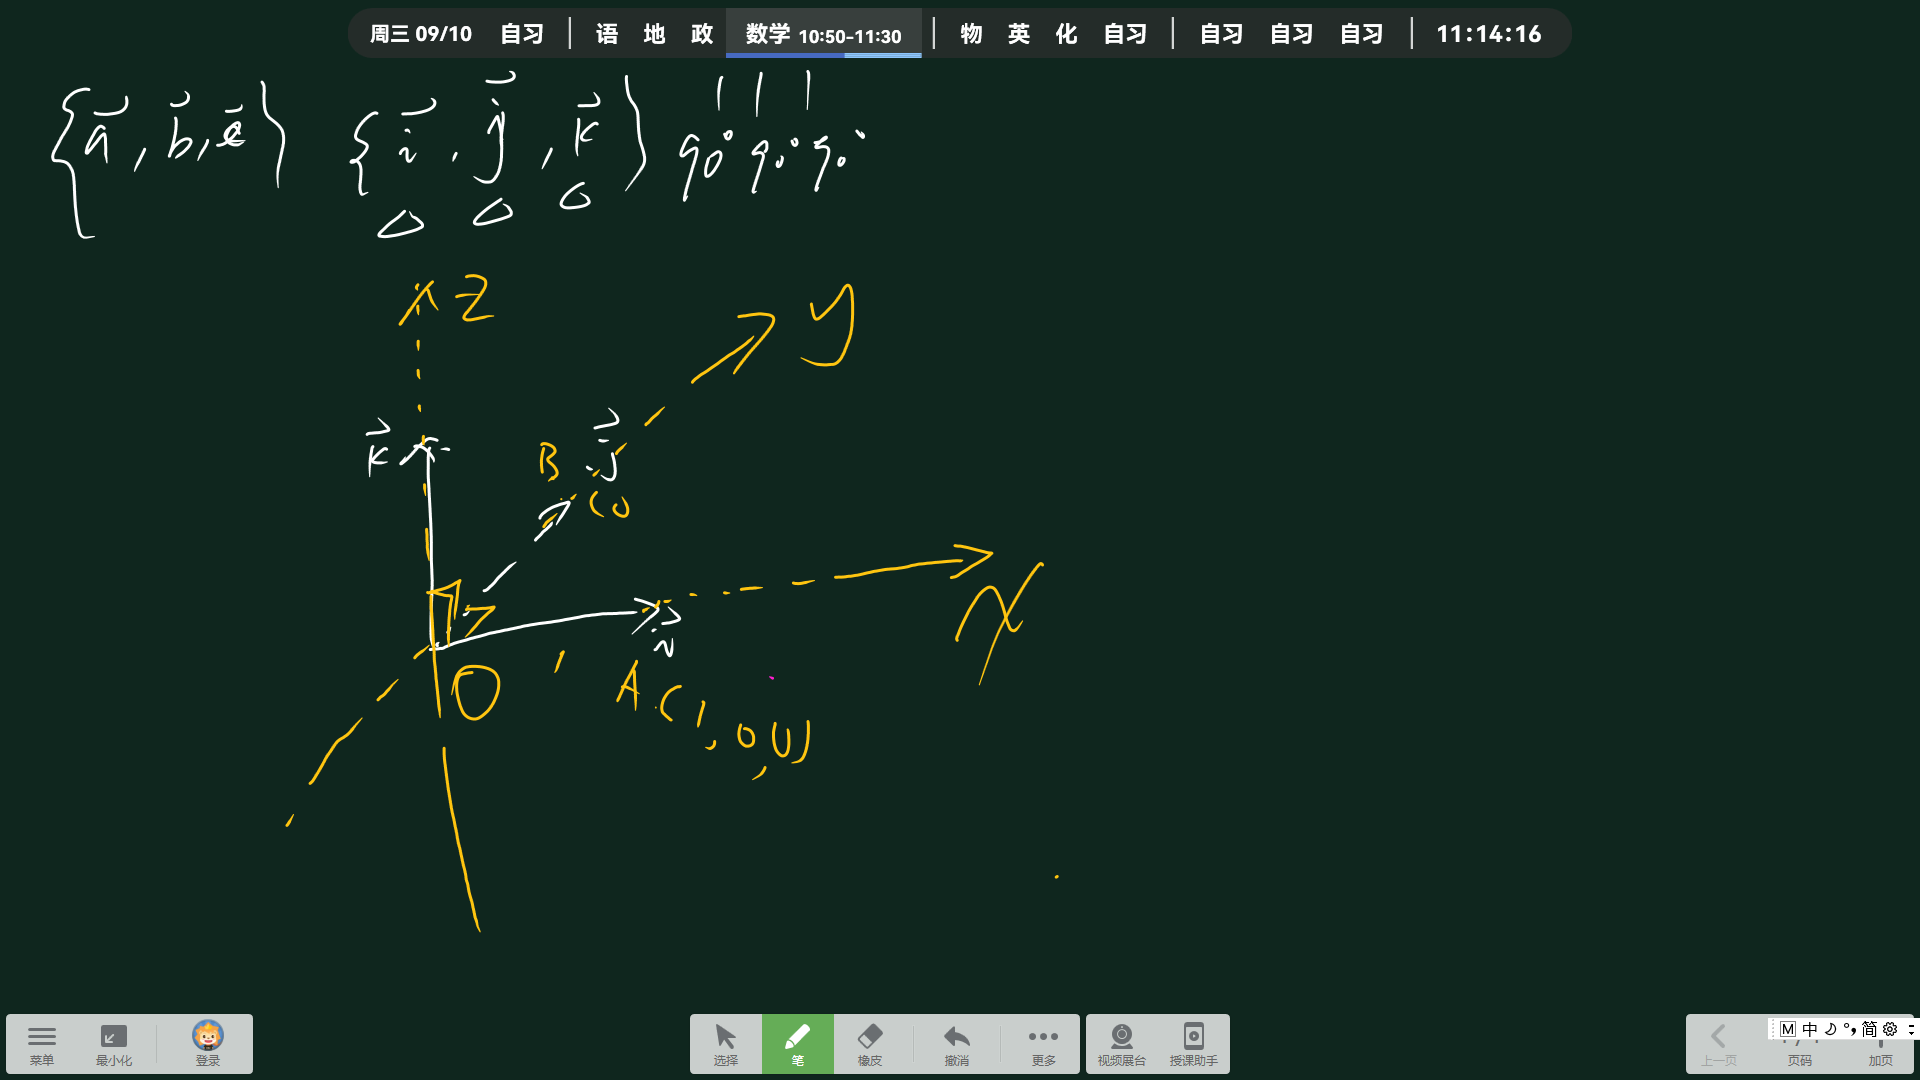 周三 09/10 自习 | 语 地 政 数学 10:50-11:30 | 物 英 化 自习 | 自习 自习 自习 | 11:14:16
{a⃗, b⃗, c⃗} {i⃗, j⃗, k⃗} 1 1 1
90° 90° 90°
0 0 0
z
y
k⃗
B j⃗
(0
x
i⃗
O
A(1,0,0)
菜单 最小化 登录 选择 笔 橡皮 撤消 更多 视频展台 授课助手 上一页 页码 加页
M 中 简